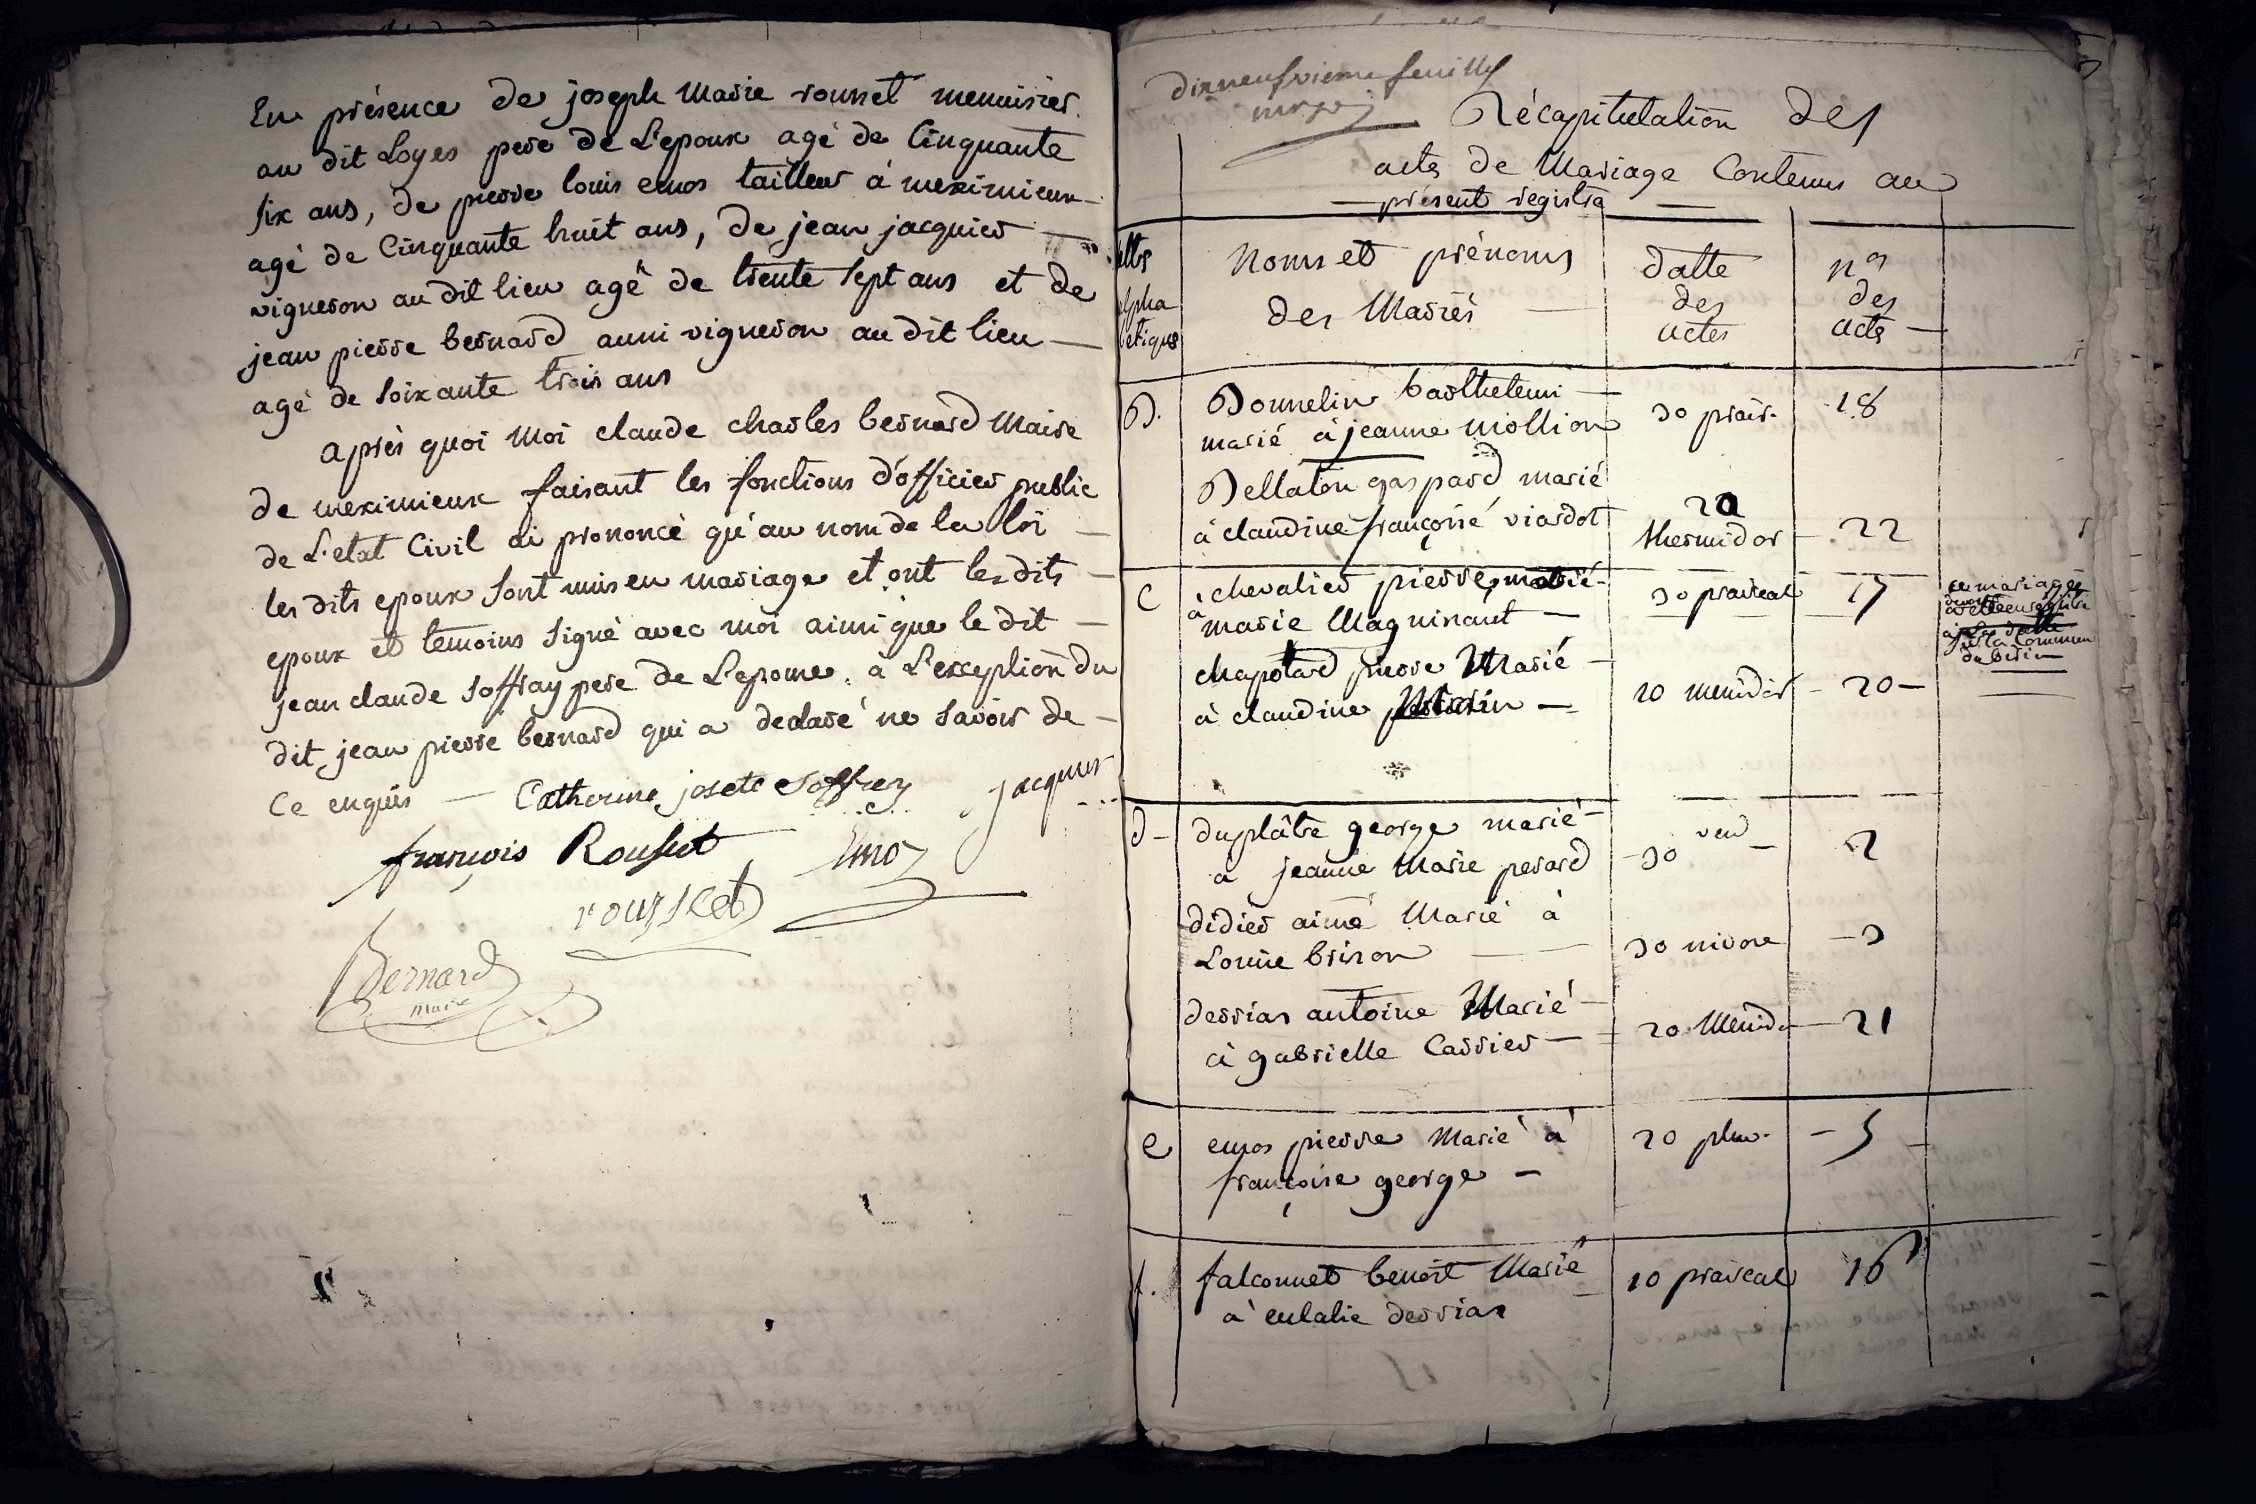 En présence de joseph Marie rousset menuisier
au dit Loyes pere de L'epoux agé de Cinquante
six ans, de pierre louis emos tailleur à meximieux
agé de Cinquante huit ans, de jean jacquier
vigneron au dit lieu agé de trente sept ans et de
jean pierre bernard aussi vigneron au dit lieu
agé de soixante trois ans
après quoi moi claude charles bernard Maire
de meximieux faisant les fonctions d'officier public
de L'etat Civil ai prononcé qu'au nom de la loi
les dits epoux sont unis en mariage et ont les dits
epoux et temoins signé avec moi ainsi que le dit
jean claude soffray pere de L'epouse à L'exception du
dit jean pierre bernard qui a declaré ne savoir de
ce enquis — Catherine josete Soffrey jacquier
françois Rousset Emoz
rousset
Bernard
maire
dixneufvieme feuillet
Récapitulation des
acte de Mariage Contenus au
présent registre
alpha
betiques
Noms et prénoms
des Mariés
datte
des
actes
nos
des
acte
B. Bonnelin barthelemi
marié à jeanne mollion 30 prair. 18
Bellaton gaspard marié
à claudine françoise viardot 20 thermidor 22
C chevalier pierre marié
à marie Maguinant 30 prairéal 17
ce mariage
la commun
chapotard pierre Marié
à claudine 20 messidor 20
d duplâtre george marié
à jeanne Marie perard 30 vend 2
didier aimé Marié à
Louise brison 30 nivose 3
derrias antoine Marié
à gabrielle Carrier 20 Messidor 21
e emos pierre Marié à
françoise george 20 pluv. 5
f. falconnet benoit Marié
à eulalie derrias 10 prairéal 16